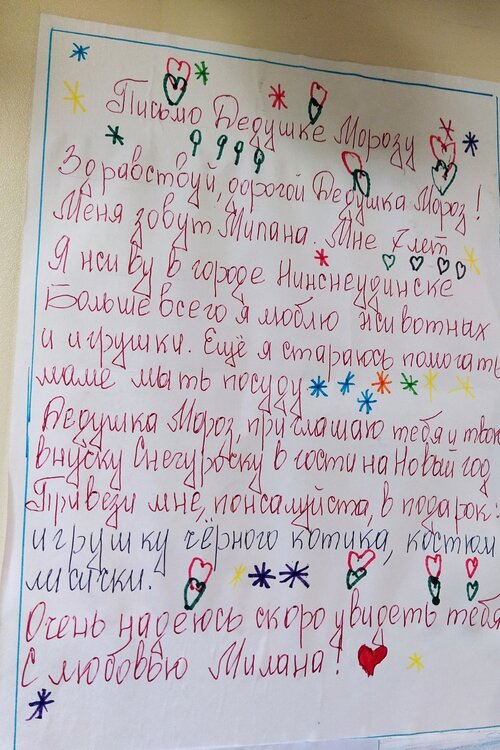 Письмо Дедушке Морозу
Здравствуй, дорогой Дедушка Мороз!
Меня зовут Милана. Мне 7 лет
Я живу в городе Нижнеудинске
Больше всего я люблю животных
и игрушки. Ещё я стараюсь помогать
маме мать посуду
Дедушка Мороз, приглашаю тебя и твою
внучку Снегурочку в гости на Новый год
Привези мне, пожалуйста, в подарок:
игрушку чёрного котика, костюм
лисички.
Очень надеюсь скоро увидеть тебя
С любовью Милана!